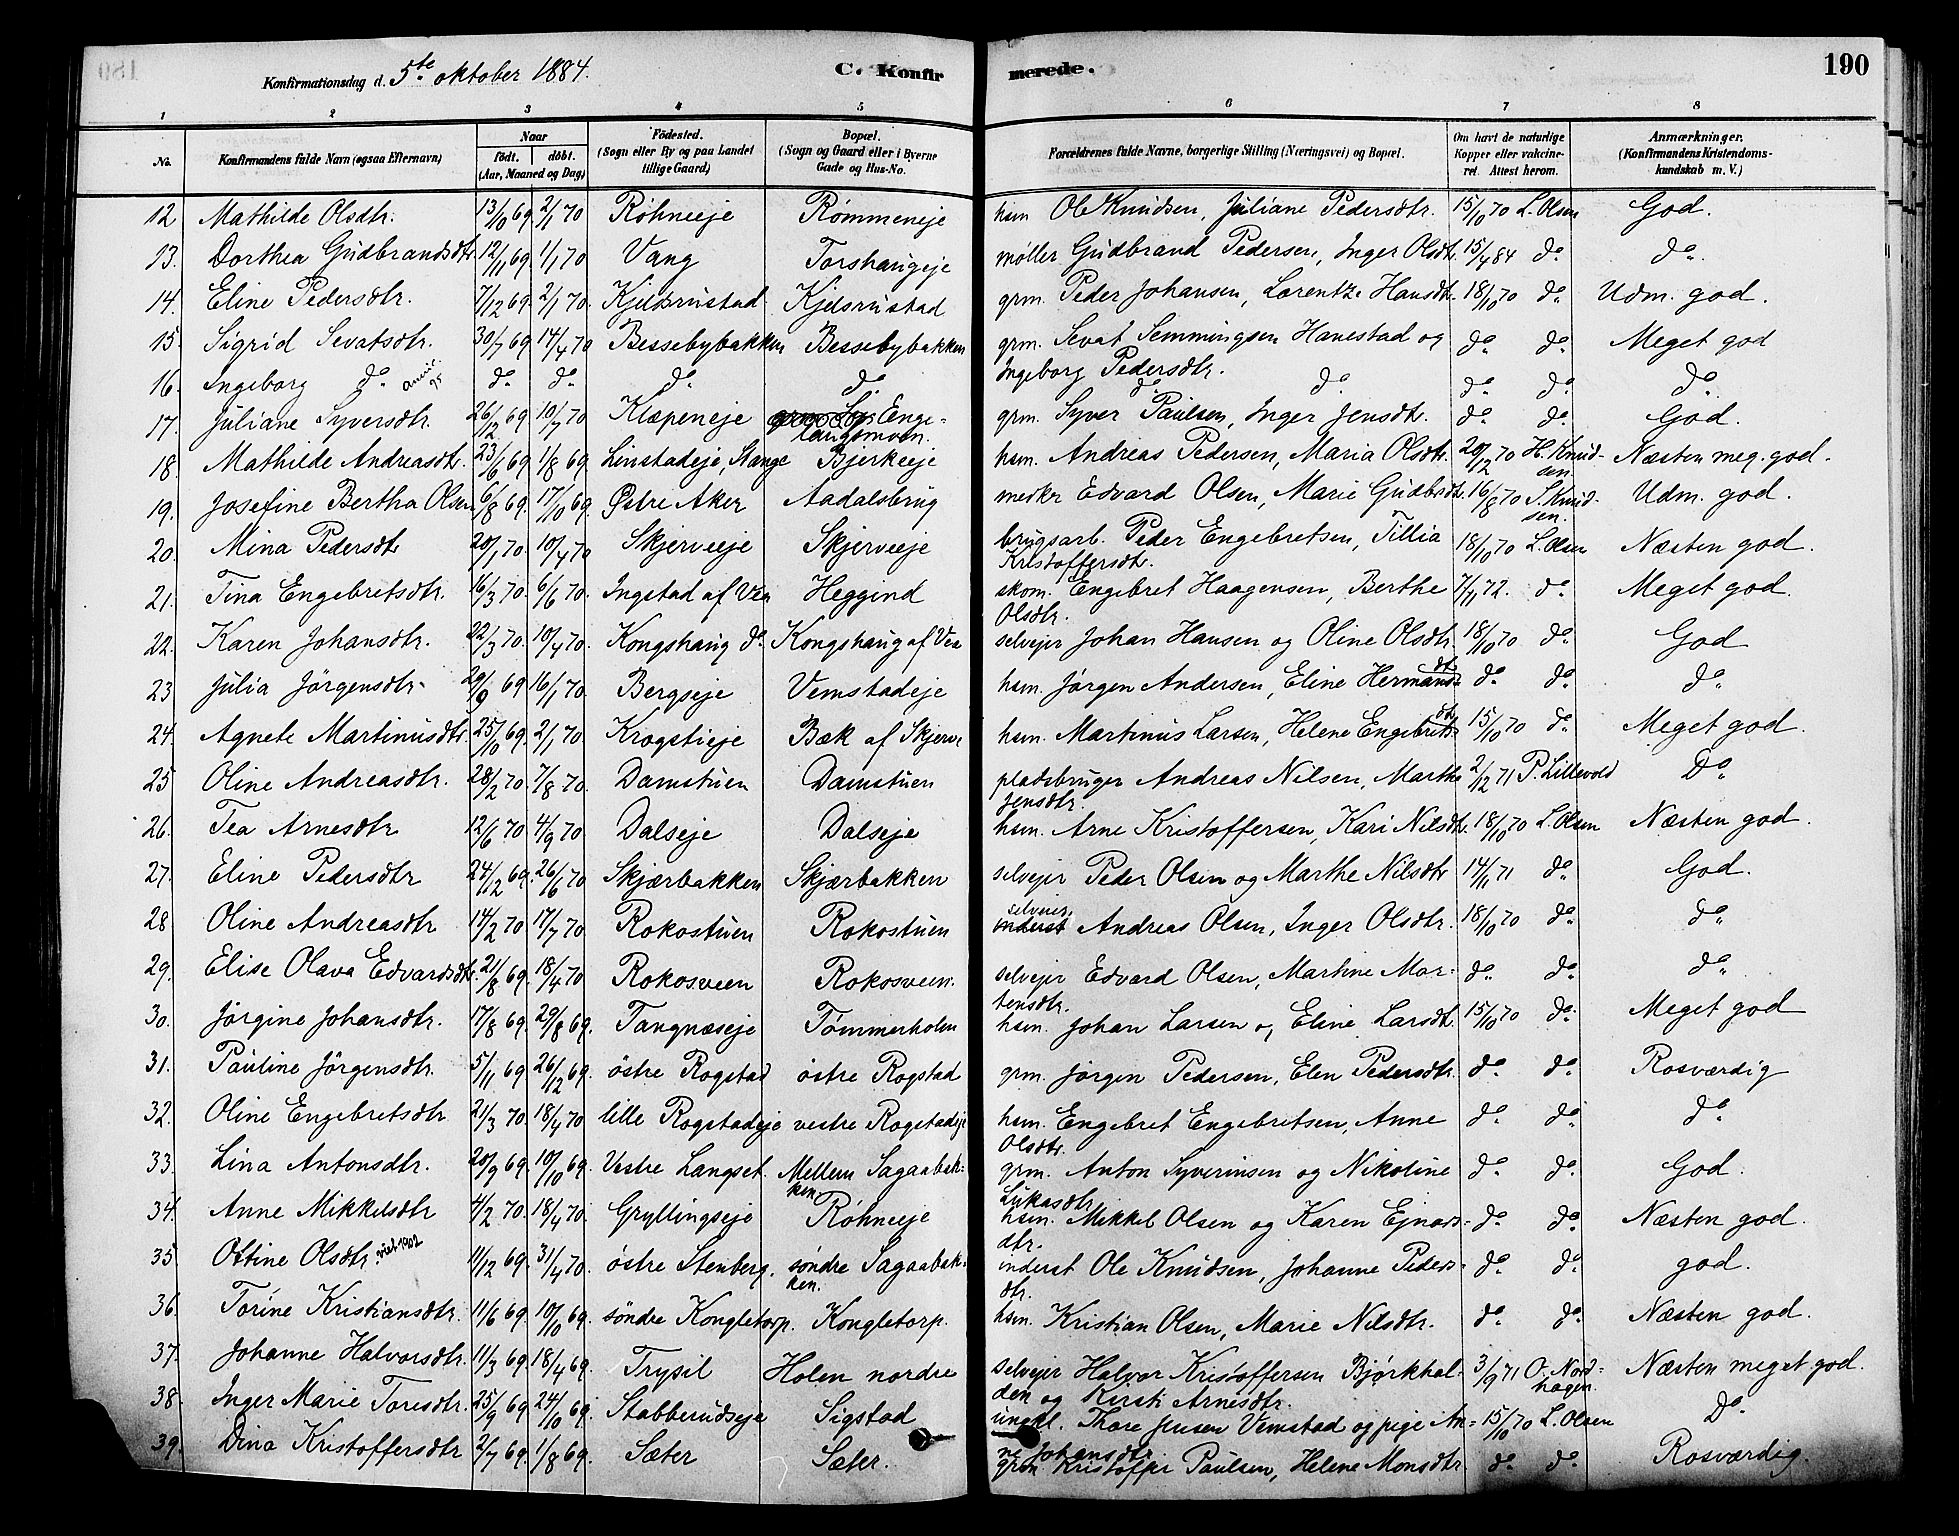 Konfirmationsdag d. 5te oktober 1884. C. Konfir merede. 190
1 2 3 4 5 6 7 8
No. Konfirmandens fulde Navn (ogsaa Efternavn) Naar födt. döbt. (Aar, Maaned og Dag) Födested. (Sogn eller By og paa Landet tillige Gaard) Bopæl. (Sogn og Gaard eller i Byerne Gade og Hus-No. Forældrenes fulde Navne, borgerlige Stilling (Næringsvei) og Bopæl. Om havt de naturlige Kopper eller vakcineret. Attest herom. Anmærkninger. (Konfirmandens Kristendomskundskab m. V.)
12. Mathilde Olsdtr. 13/10 69 2/1 70 Röhneeje Rømmeneje hsm Ole Knudsen, Juliane Pedersdtr. 15/10 70 L. Olsen God.
13. Dorthea Gudbrandsdtr 12/11 69 1/1 70 Vang Torshaugeje møller Gudbrand Pedersen, Inger Olsdtr. 15/4 84 do do.
14. Eline Pedersdtr. 7/12 69 2/1 70. Kjelsrustad Kjelsrustad grm. Peder Johansen, Lorentze Hansdtr. 18/10 70 do Udm. god.
15. Sigrid Sevatsdtr. 30/7 69 14/4 70 Bessebybakken Bessebybakken grm. Sevat Semmingsen Hanestad og do. do. Meget god
Ingeborg Pedersdtr.
16. Ingeborg do. do. do. do. do. do. do. do. do. do.
17. Juliane Syversdtr. 26/12 69 10/7 70 Klæpeneje Engelaugsmoen. grm. Syver Paulsen, Inger Jensdtr. do. do. God.
18. Mathilde Andreasdtr. 23/6 69 1/8 69 Linstadeje, Stange Bjerkeeje hsm. Andreas Pedersen, Maria Olsdtr. 20/12 70 H. Knudsen Næsten meg. god.
19. Josefine Bertha Olsen 6/8 69. 17/10 69. Østre Aker Aadalsbrug Edvard Olsen, Marie Gudbrdtr. 16/8 70 S. Knudsen. Udm. god.
20. Mina Pedersdtr 20/1 70. 10/4 70 Skjerveeje Skjerveeje brugsarb. Peder Engebretsen, Tillia 18/10 70 L. Olsen Næsten god.
Kristoffersdtr.
21. Tina Engebretsdtr. 16/3 70. 6/6 70. Ingstad af Vea Heggind skom. Engebret Haagensen, Berthe 7/11 72. do. Meget god.
Olsdtr.
22. Karen Johansdtr. 22/3 70. 10/4 70. Kongshaug do. Kongshaug af Vea selvejer Johan Hansen og Oline Olsdtr. 18/10 70 do. God
23 Julia Jörgensdtr. 29/9 69 16/1 70. Bergseje Vemstadeje hsm. Jørgen Andersen, Eline Hermandsdtr do. do. do.
24. Agnete Martinusdtr. 25/10 69. 2/1 70. Krogstieje Bæk af Skjerve hsm. Martinus Larsen, Helene Engebretsdtr 15/10 70 do. Meget god.
25 Oline Andreasdtr. 28/2 70. 7/8 70. Damstuen Damstuen pladsbruger Andreas Nilsen, Marthe 2/12 71 P. Lillevold Do.
Jensdtr.
26. Tea Arnesdtr 12/6 70. 4/9 70 Dalseje Dalseje hsm. Arne Kristoffersen, Kari Nilsdtr. 18/10 70 L. Olsen Næsten god.
27. Eline Pedersdtr 24/12 69. 26/6 70 Skjærbakken Skjærbakken selvejer Peder Olsen og Marthe Nilsdtr 14/11 71 do. God.
28 Oline Andreasdtr 14/2 70 17/7 70 Rokostuen Rokostuen selveier. inderst Andreas Olsen, Inger Olsdtr. 18/10 70 do. do.
29. Elise Olava Edvardsdtr. 21/8 69. 18/4 70 Rokosveen Rokosveen. selvejer Edvard Olsen, Martine Mortensdtr. do. do. do.
30. Jørgine Johansdtr. 17/8 69. 29/8 69. Tangnæseje Tømmerholen hsm. Johan Larsen og Eline Larsdtr. 15/10 70 do. Meget god
31. Pauline Jörgensdtr. 5/11 69 26/12 69. östre Rogstad östre Rogstad grm. Jørgen Pedersen, Elen Pedersdtr. do. do. Rosværdig
32. Oline Engebretsdtr 21/3 70. 18/4 70. lille Rogstadeje vestre Rogstadeje hsm. Engebret Engebretsen, Anne do. do. do.
Olsdtr.
33. Lina Antonsdtr. 20/9 69. 10/10 69. Vestre Langset. Mellem Sagaabakken grm. Anton Syverinsen og Nikoline do. do. God.
Lukasdtr
34. Anne Mikkelsdtr 4/2 70. 18/4 70. Gryllingseje Röhneeje hsm. Mikkel Olsen og Karen Ejnarsdtr. do. do. Næsten god.
35. Ottine Olsdtr. viet 1902 11/12 69. 31/4 70. östre Stenberg. søndre Sagaabakken. inderst Ole Knudsen, Johanne Pedersdtr. do. do. god.
36. Torine Kristiansdtr. 11/6 69. 10/10 69. söndre Kongletorp. Kongletorp. hsm. Kristian Olsen, Marie Nilsdtr. do. do. Næsten god.
37. Johanne Halvorsdtr. 11/3 69. 18/4 69. Trysil Holen nordre selvejer Halvor Kristoffersen Bjørkhalden og Kirsti Arnesdtr. 3/9 71 O. Nordhagen. Næsten meget god.
38. Inger Marie Toresdtr. 25/9 69 24/10 69. Stabberudseje Sigstad ungkl. Thore Jensen Vemstad og pige Anne Johansdtr. 15/10 70 L. Olsen Do.
39. Dina Kristoffersdtr 2/7 69. 1/8 69. Sæter Sæter. grm Kristoffer Paulsen, Helene Monsdtr. do. do. Rosværdig.